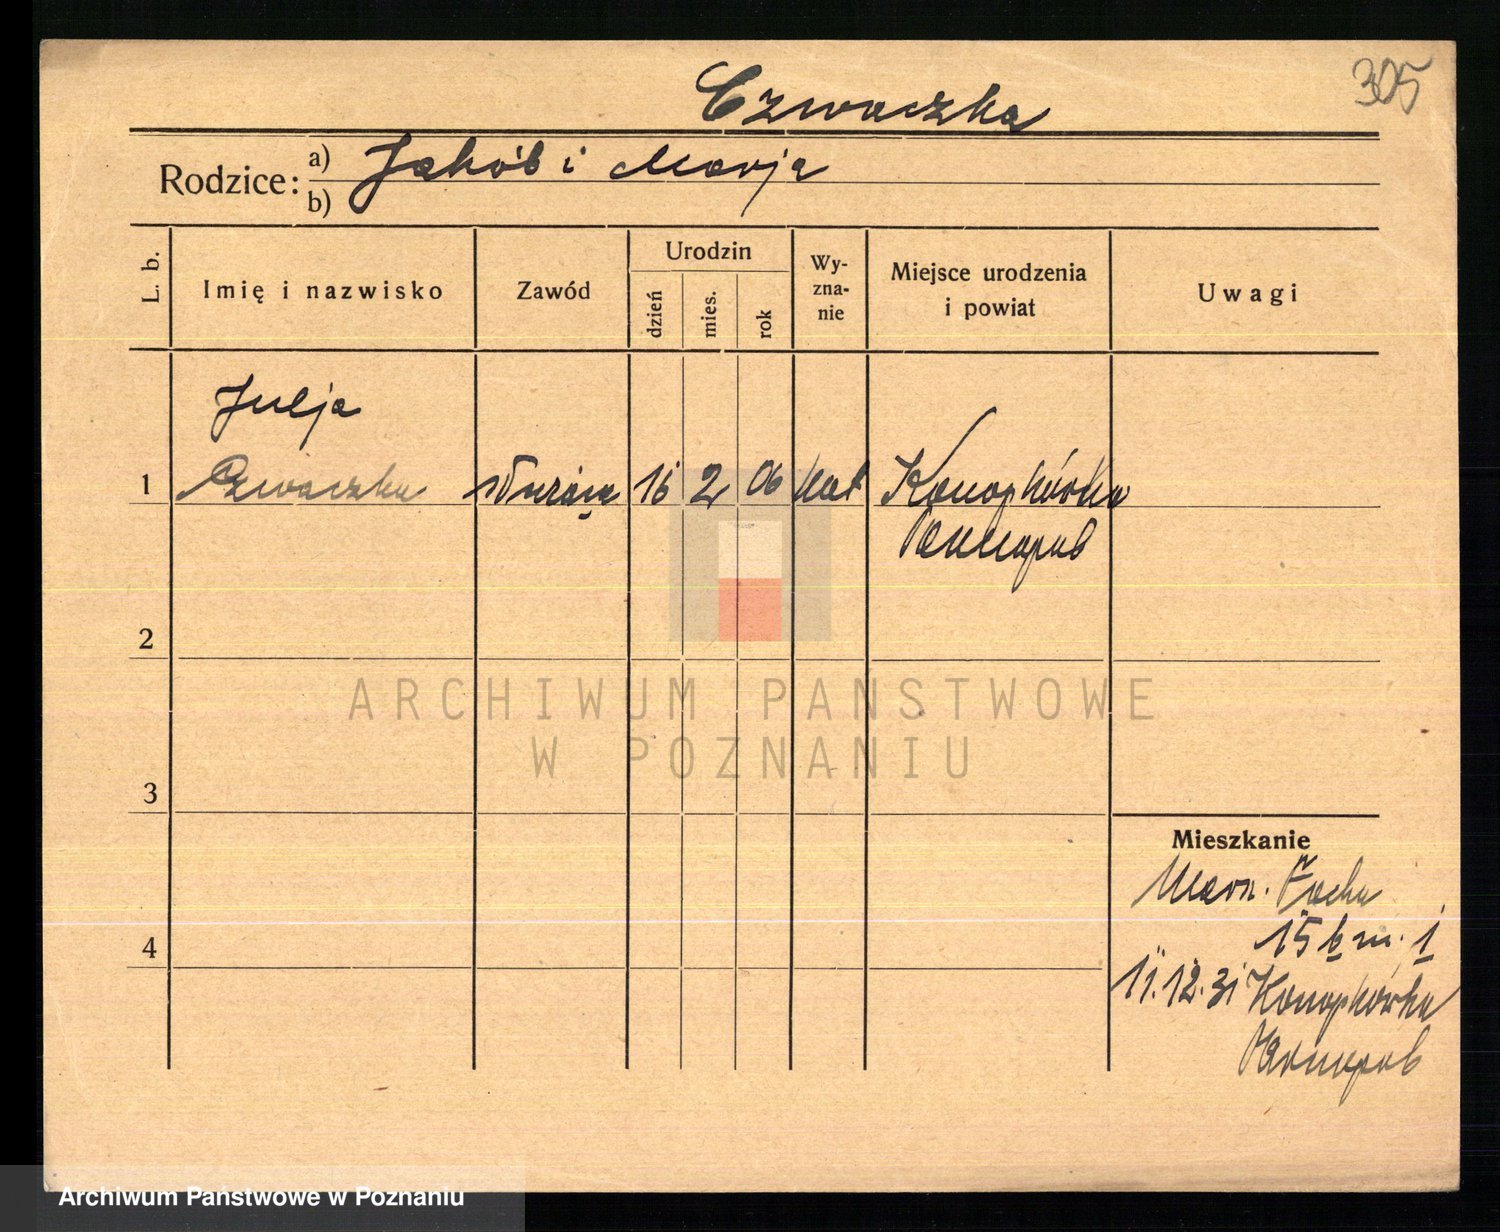 305
Czwaczka
Rodzice: a) Jakób i Marja
b)
L. b. Imię i nazwisko Zawód Urodzin dzień mies. rok Wy-zna-nie Miejsce urodzenia i powiat Uwagi
Julja
1 Czwaczka służąca 16 2 06 kat Konopkówka
Tarnopol
2
ARCHIWUM PAŃSTWOWE
W POZNANIU
3
Mieszkanie
Marsz. Focha
15 b m. 1
4
11.12.31 Konopkówka
Tarnopol
Archiwum Państwowe w Poznaniu